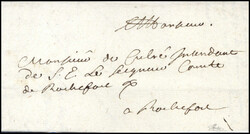 A Monsieur
Monsieur de Culré Intendant
de S. E. Le Seigneur Comte
de Rochefort
a Rochefort